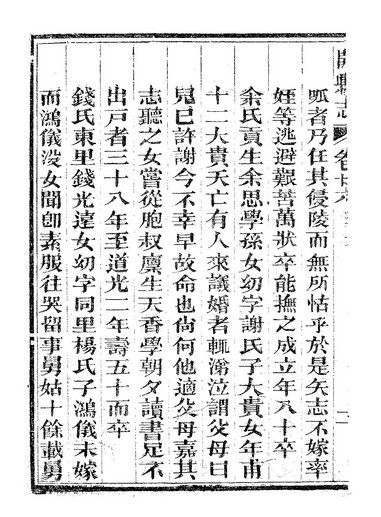 開縣志 卷
呱者乃任其侵陵而無所怙乎於是矢志不嫁率
姪等逃避艱苦萬狀卒能撫之成立年八十卒
余氏貢生余思學孫女幼字謝氏子大貴女年甫
十二大貴夭亡有人來議婚者輒涕泣謂父母曰
兒已許謝今不幸早故命也尚何他適父母嘉其
志聽之女嘗從胞叔廩生天香學朝夕讀書足不
出戸者三十八年至道光二年壽五十而卒
錢氏東里錢光遠女幼字同里楊氏子鴻儀未嫁
而鴻儀沒女聞卽素服往哭留事舅姑十餘載舅